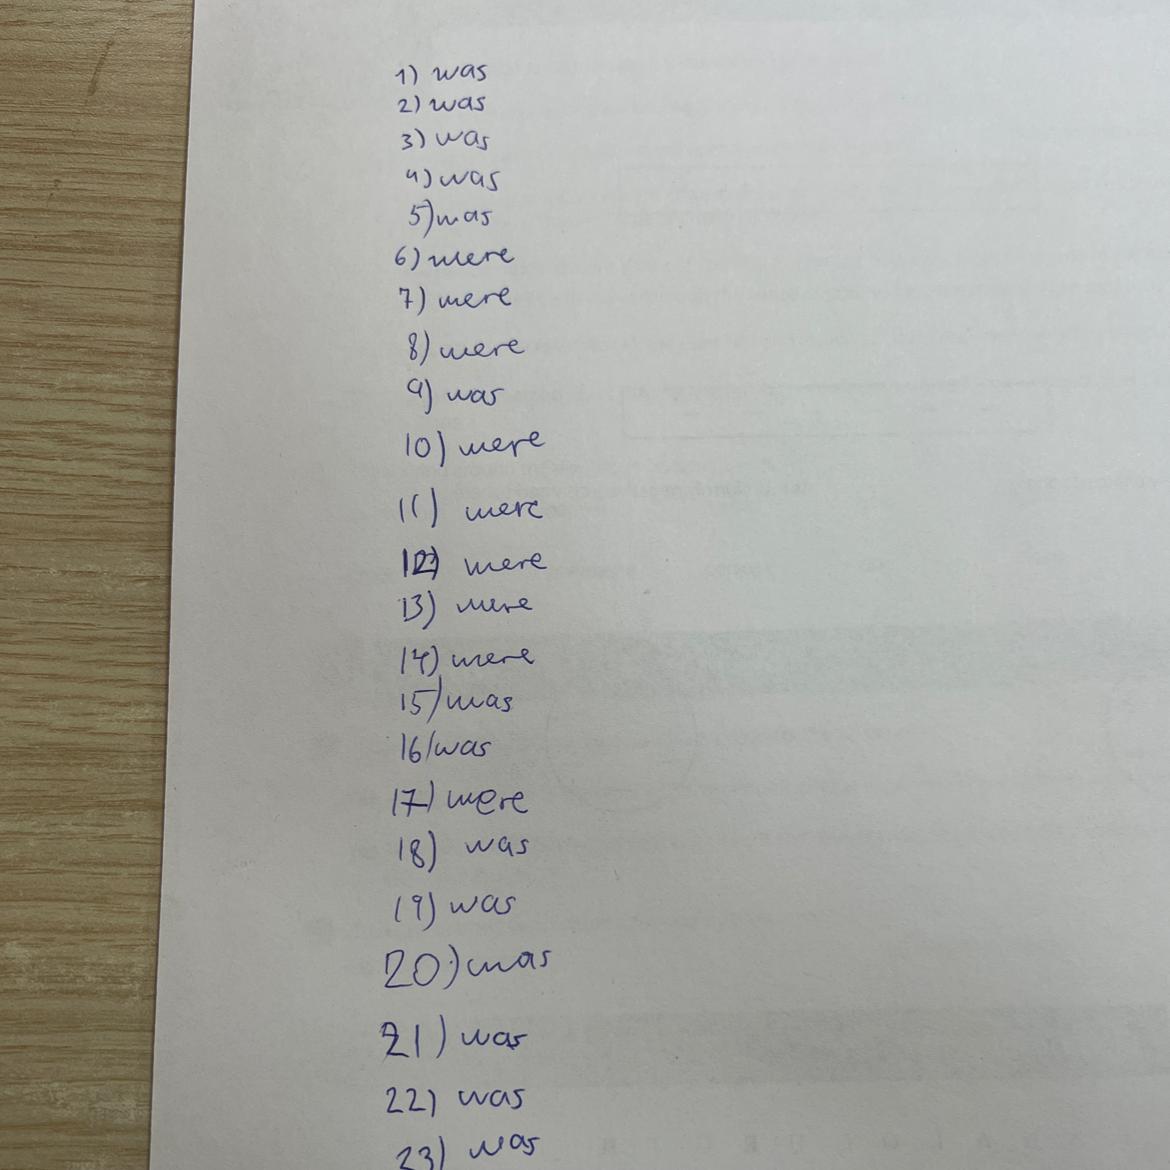 1) was
2) was
3) was
4) was
5) was
6) were
7) were
8) were
9) was
10) were
11) were
12) were
13) were
14) were
15) was
16) was
17) were
18) was
19) was
20) was
21) was
22) was
23) was